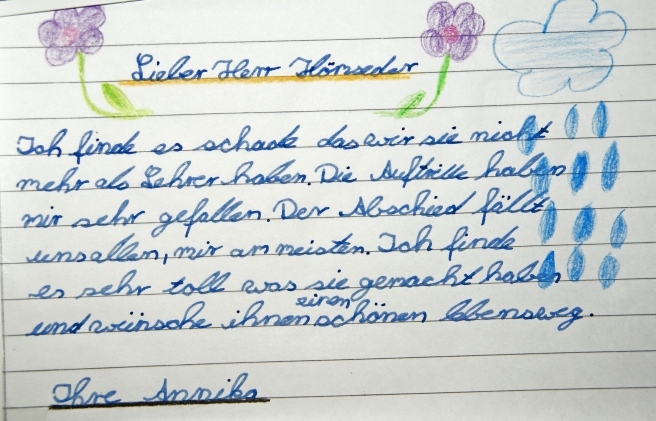 Lieber Herr Hörseder
Ich finde es schade das wir sie nicht
mehr als Lehrer haben. Die Auftritte haben
mir sehr gefallen. Der Abschied fällt
uns allen, mir am meisten. Ich finde
es sehr toll was sie gemacht haben
und wünsche ihnen einen schönen lebensweg.
Ihre Annika